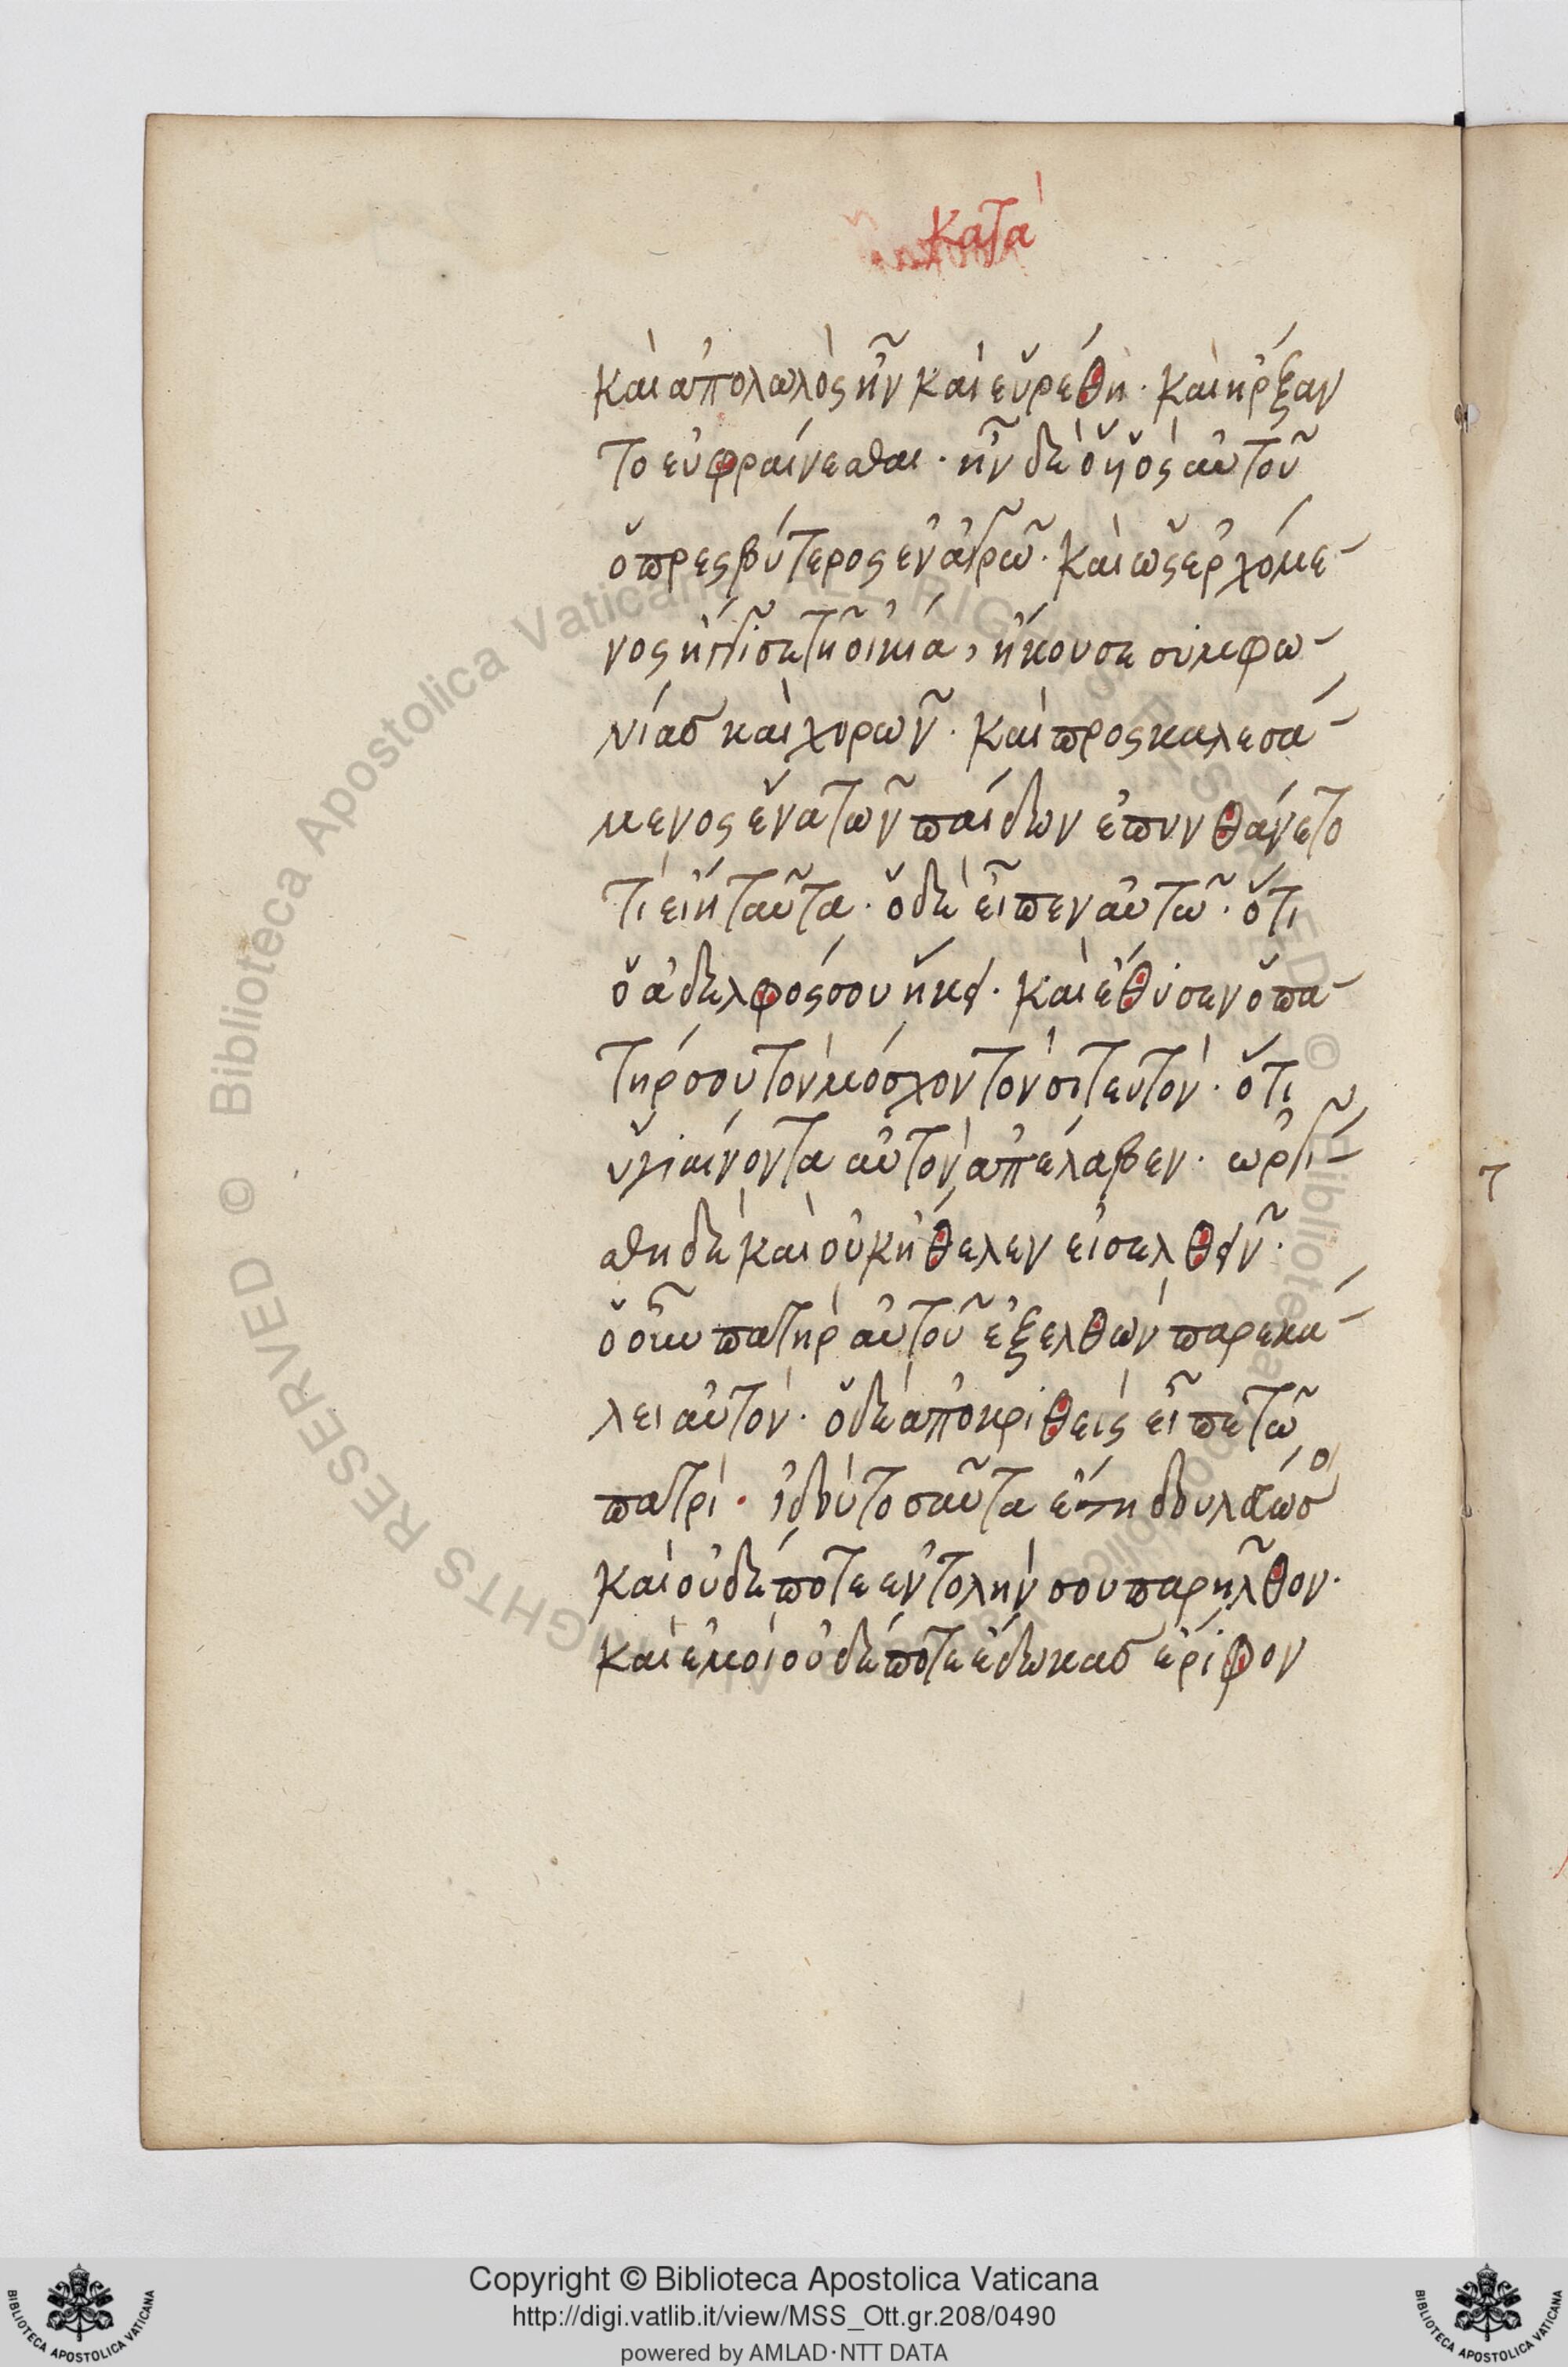 Κατὰ
καὶ ἀπολωλὸς ἦν καὶ εὑρέθη· καὶ ἤρξαν
το εὐφραίνεσθαι· ἦν δὲ ὁ ὑιὸς αὐτοῦ
ὁ πρεσβύτερος ἐν ἀγρῶ· καὶ ὡς ἐρχόμε-
νος ἤγγισε τῆ οἰκία, ἤκουσε συμφω-
νίασ καὶ χορῶν· καὶ προσκαλεσά-
μενος ἕνα τῶν παίδων ἐπυνθάνετο
τί εἴη ταῦτα· ὁ δὲ εἶπεν αὐτῶ· ὅτι
ὁ ἀδελφός σου ἥκει· καὶ ἔθυσεν ὁ πα-
τήρ σου τὸν μόσχον τὸν σιτευτὸν· ὅτι
ὑγιαίνοντα αὐτὸν ἀπέλαβεν· ὠργί-
σθη δὲ καὶ οὐκ ἤθελεν εἰσελθεῖν·
ὁ οὖν πατὴρ αὐτοῦ ἐξελθὼν παρεκά-
λει αὐτόν· ὁ δὲ ἀποκριθεὶς εἶπε τῶ
πατρί· ἰδοὺ τοσαῦτα ἔτη δουλεύω σοι
καὶ οὐδέποτε ἐντολήν σου παρῆλθον·
καὶ ἐμοὶ οὐδέποτε ἔδωκασ ἔριφον
Copyright © Biblioteca Apostolica Vaticana
http://digi.vatlib.it/view/MSS_Ott.gr.208/0490
powered by AMLAD·NTT DATA
BIBLIOTECA APOSTOLICA VATICANA
BIBLIOTECA APOSTOLICA VATICANA